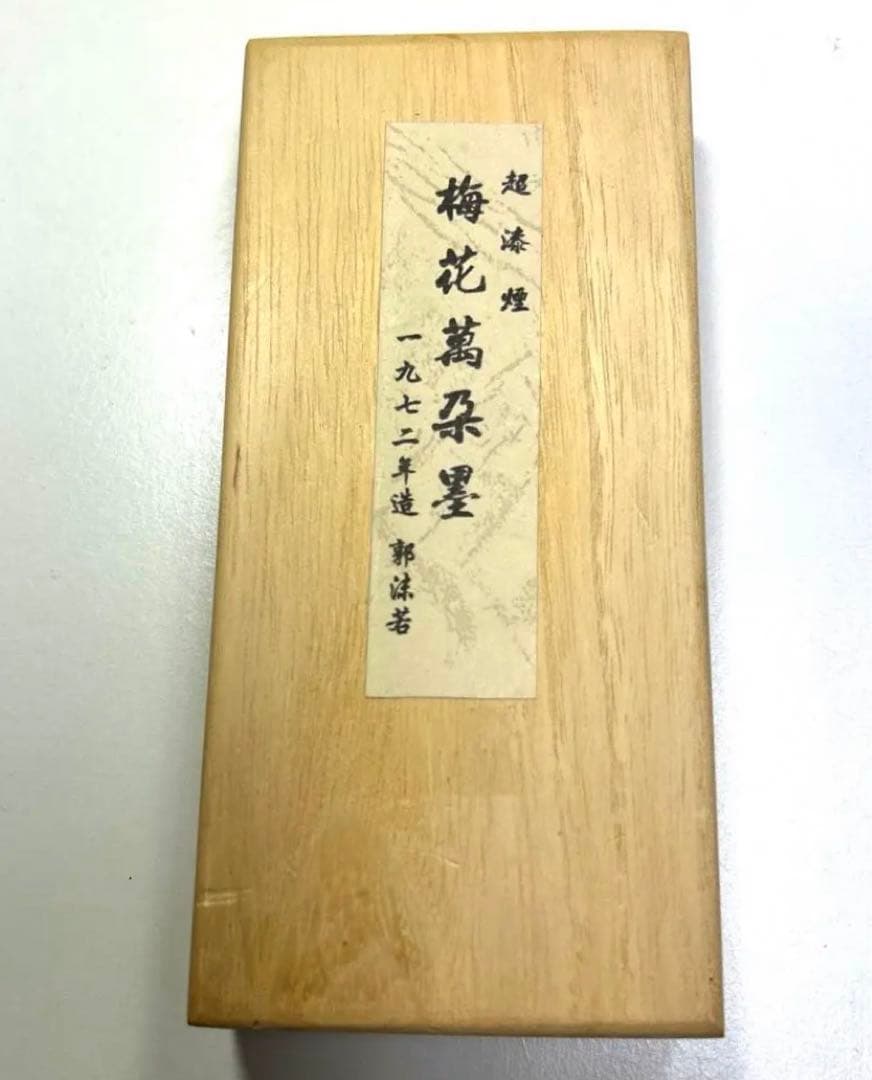 超漆煙
梅花萬朶墨
一九七二年造 郭沫若